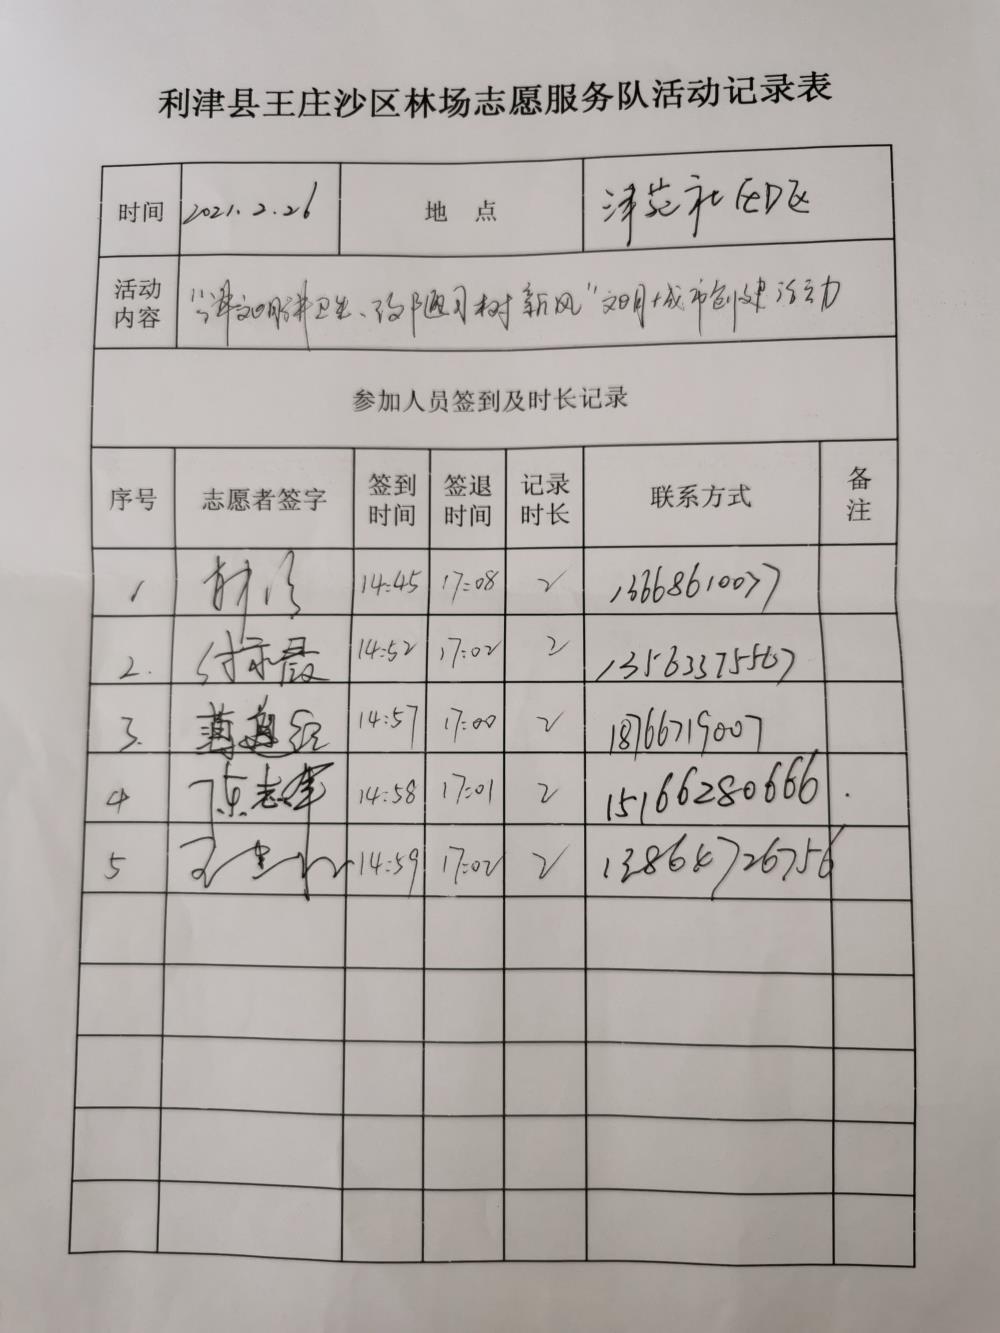 利津县王庄沙区林场志愿服务队活动记录表
时间 2021.2.26 地 点 津苑社区D区
活动内容 "讲文明讲卫生、改陋习树新风"文明城市创建活动
参加人员签到及时长记录
序号 志愿者签字 签到时间 签退时间 记录时长 联系方式 备注
1 14:45 17:08 2 13668610077
2. 14:52 17:02 2 13563375567
3. 14:57 17:00 2 18766719007
4 陈志军 14:58 17:01 2 15166280666
5 14:59 17:02 2 13864726756